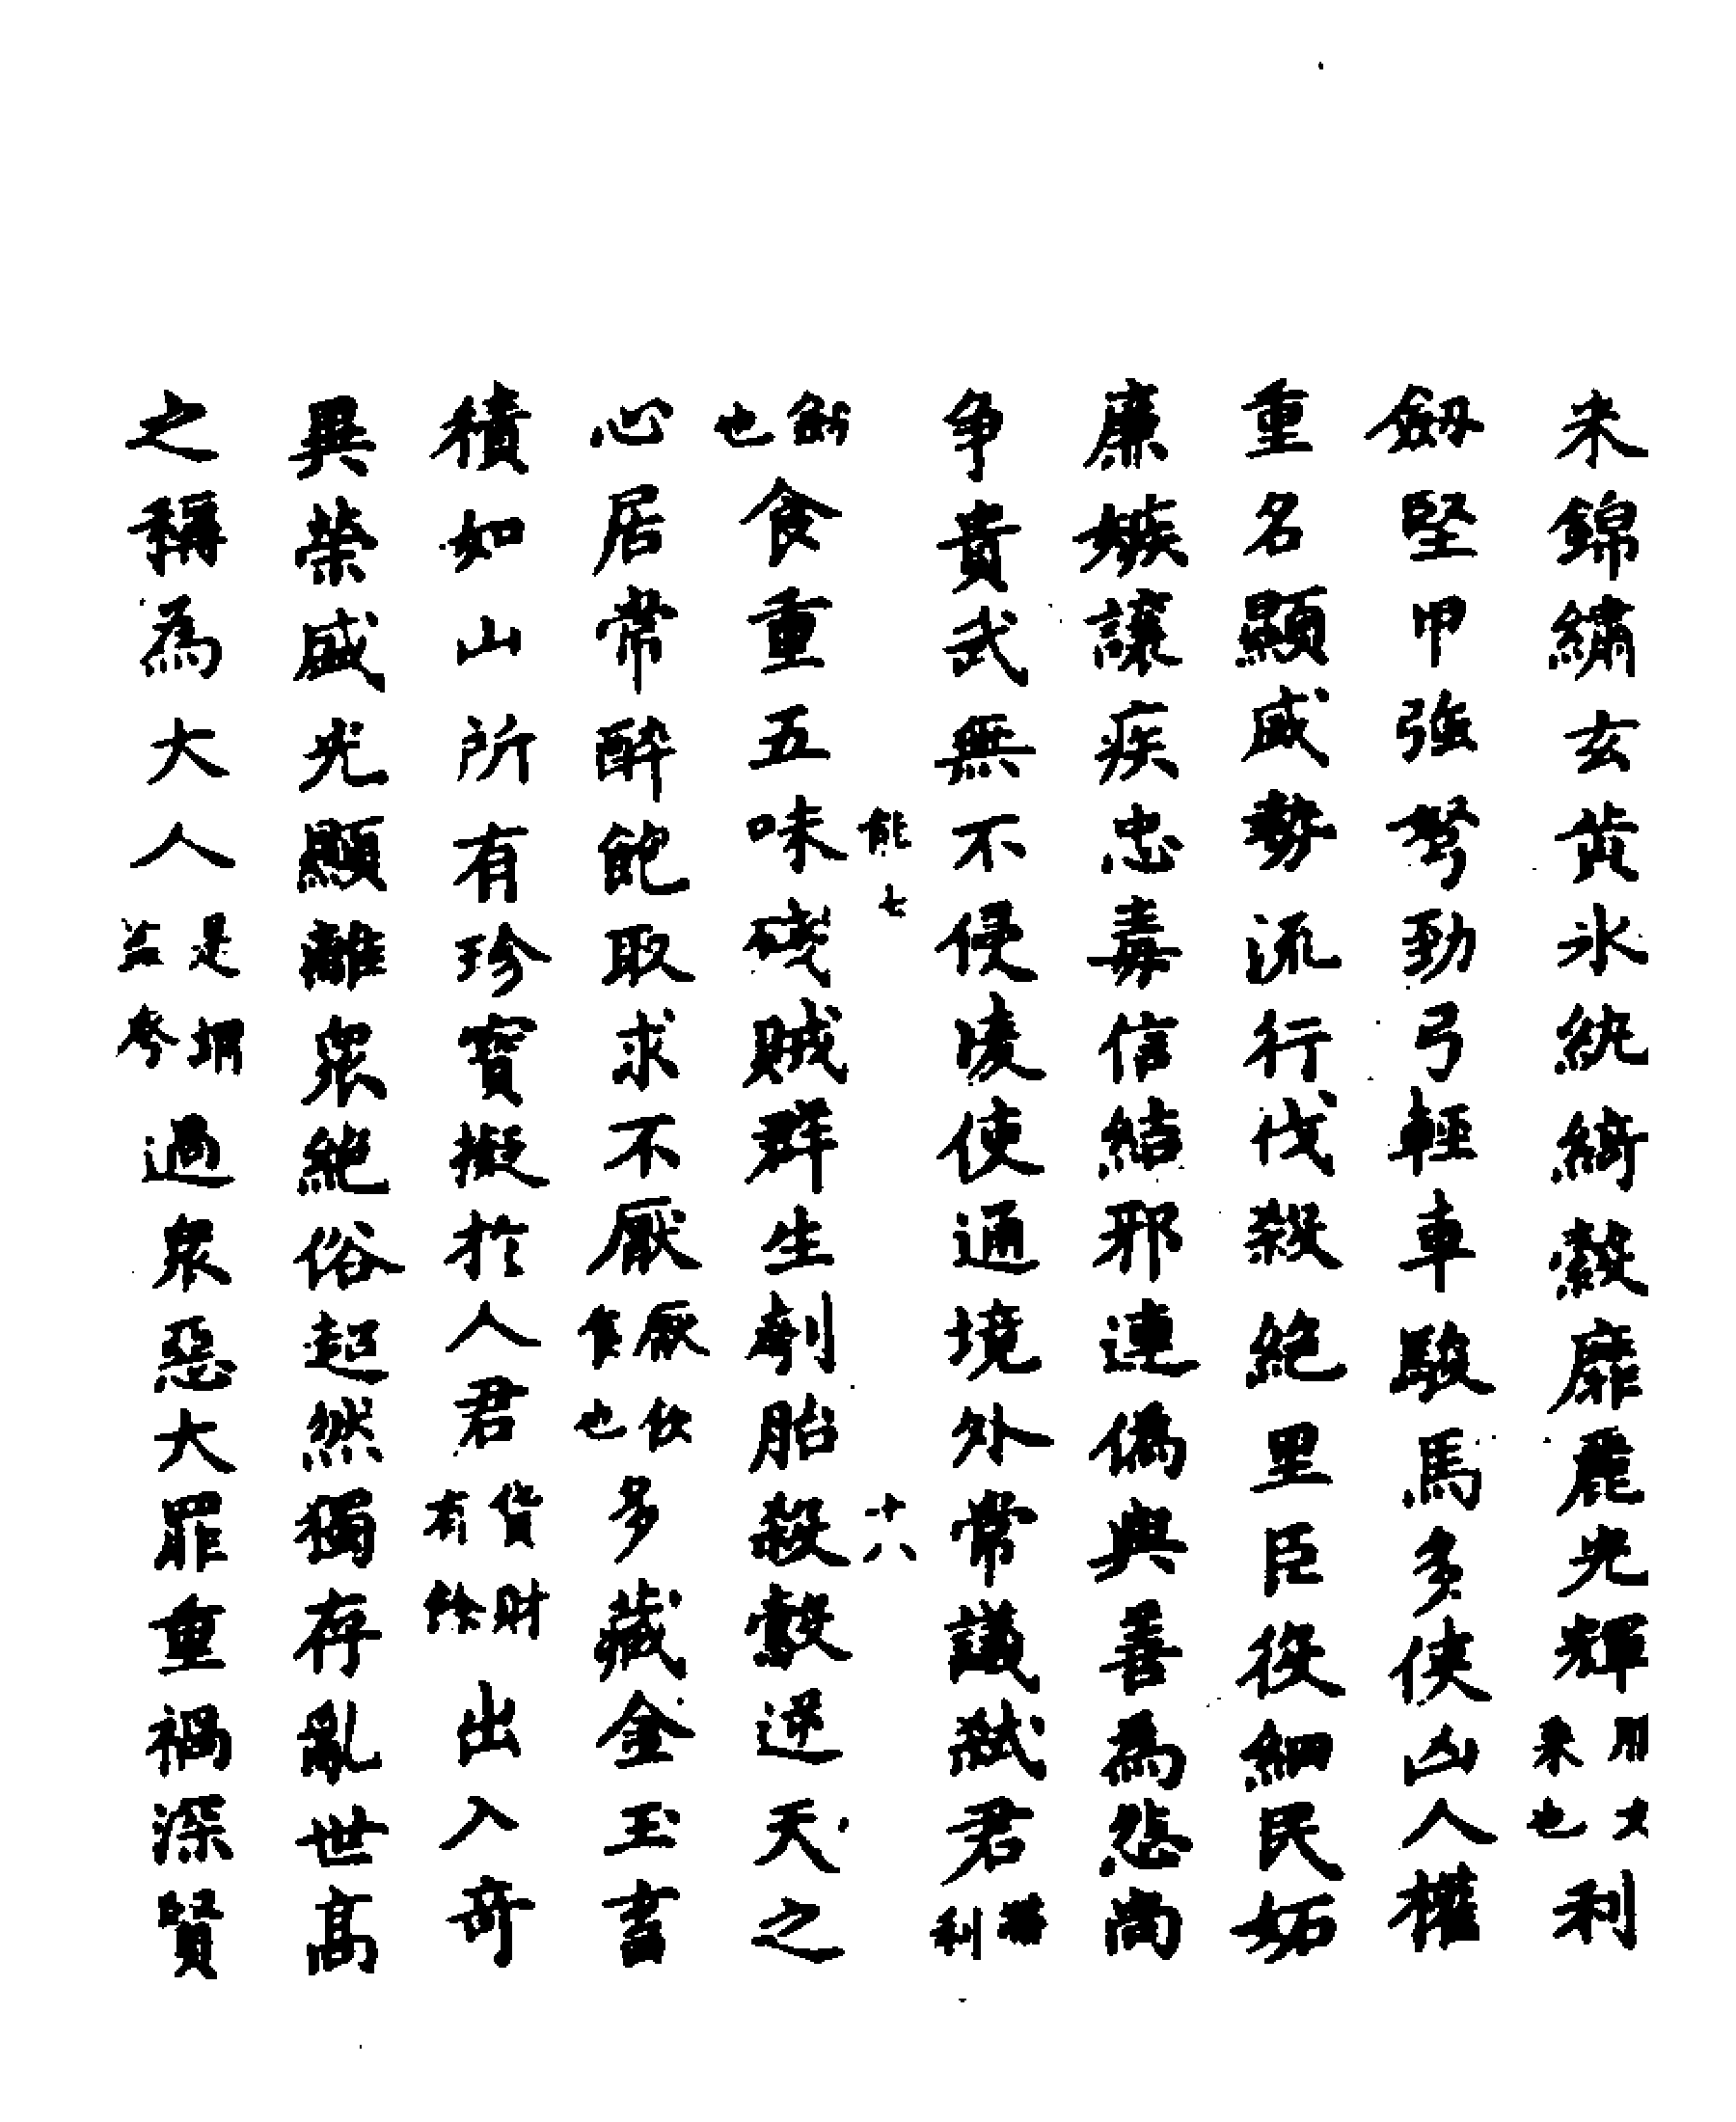 米錦繡玄黃氷紈綺縠靡麗光輝服文采也利
劒堅甲強弩勁弓輕車駿馬多俠凶人權
重名顯威勢流行伐殺絶里臣役細民妬
廉嫉讓疾忠毒信結邪連僞與善為怨尚
争貴武無不侵凌使通境外常議弑君
利
能七
十八
劒也食重五味殘賊群生刳胎殺鷇逆天之
心居常醉飽取求不厭厭飲食也多藏金玉畜
積如山所有珍寳擬於人君貨財有餘出入奇
異榮盛光顯離衆絶俗超然獨存亂世高
之稱為大人是謂盗夸過衆惡大罪重禍深賢